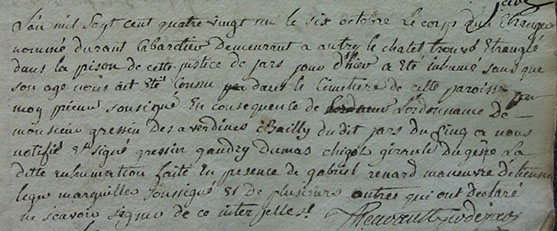 L'an mil sept cent quatre vingt un le six octobre le corp qun Etranger
nommé durant Cabaretier demeurant a autry le chatel trouvé Etranglé
dans la prison de cette justice de jars jour d'hier a été inhumé sans que
son age nous ait été connu dans le Cimetiere de cette paroisse par
moy prieur sousigné En consequence de L'ordonnance de
monsieur gressin des averdines Bailly du dit jars du Cinq a nous
notifié et signé gressin gaudry dumas chigot girault La
ditte inhumation faite En presence de gabriel renard manoeuvre d'etienne
marguillier soussigné Et de plusieurs autres qui ont declaré
ne scavoir signer de ce interpelles